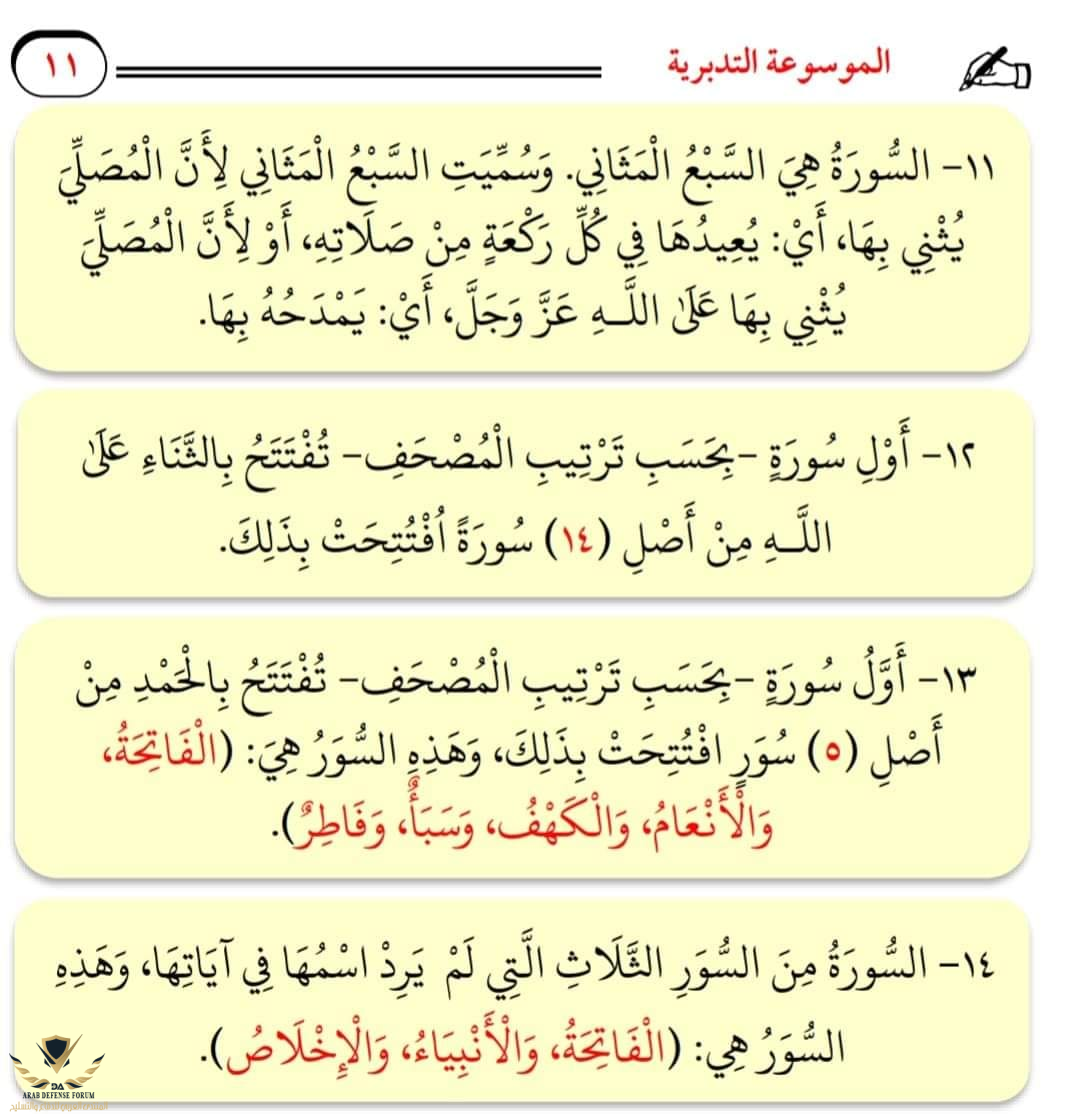 الموسوعة التدبرية
١١
١١- السُّورَةُ هِيَ السَّبْعُ الْمَثَانِي. وَسُمِّيَتِ السَّبْعُ الْمَثَانِي لِأَنَّ الْمُصَلِّيَ
يُثْنِي بِهَا، أَيْ: يُعِيدُهَا فِي كُلِّ رَكْعَةٍ مِنْ صَلَاتِهِ، أَوْ لِأَنَّ الْمُصَلِّيَ
يُثْنِي بِهَا عَلَىٰ اللَّـهِ عَزَّ وَجَلَّ، أَيْ: يَمْدَحُهُ بِهَا.
١٢- أَوْلِ سُورَةٍ -بِحَسَبِ تَرْتِيبِ الْمُصْحَفِ- تُفْتَتَحُ بِالثَّنَاءِ عَلَىٰ
اللَّـهِ مِنْ أَصْلِ (١٤) سُورَةً اُفْتُتِحَتْ بِذَلِكَ.
١٣- أَوَّلُ سُورَةٍ -بِحَسَبِ تَرْتِيبِ الْمُصْحَفِ- تُفْتَتَحُ بِالْحَمْدِ مِنْ
أَصْلِ (٥) سُوَرٍ افْتُتِحَتْ بِذَلِكَ، وَهَذِهِ السُّوَرُ هِيَ: (الْفَاتِحَةُ،
وَالْأَنْعَامُ، وَالْكَهْفُ، وَسَبَأٌ، وَفَاطِرٌ).
١٤- السُّورَةُ مِنَ السُّوَرِ الثَّلَاثِ الَّتِي لَمْ يَرِدْ اسْمُهَا فِي آيَاتِهَا، وَهَذِهِ
السُّوَرُ هِي: (الْفَاتِحَةُ، وَالْأَنْبِيَاءُ، وَالْإِخْلَاصُ).
DA
ARAB DEFENSE FORUM